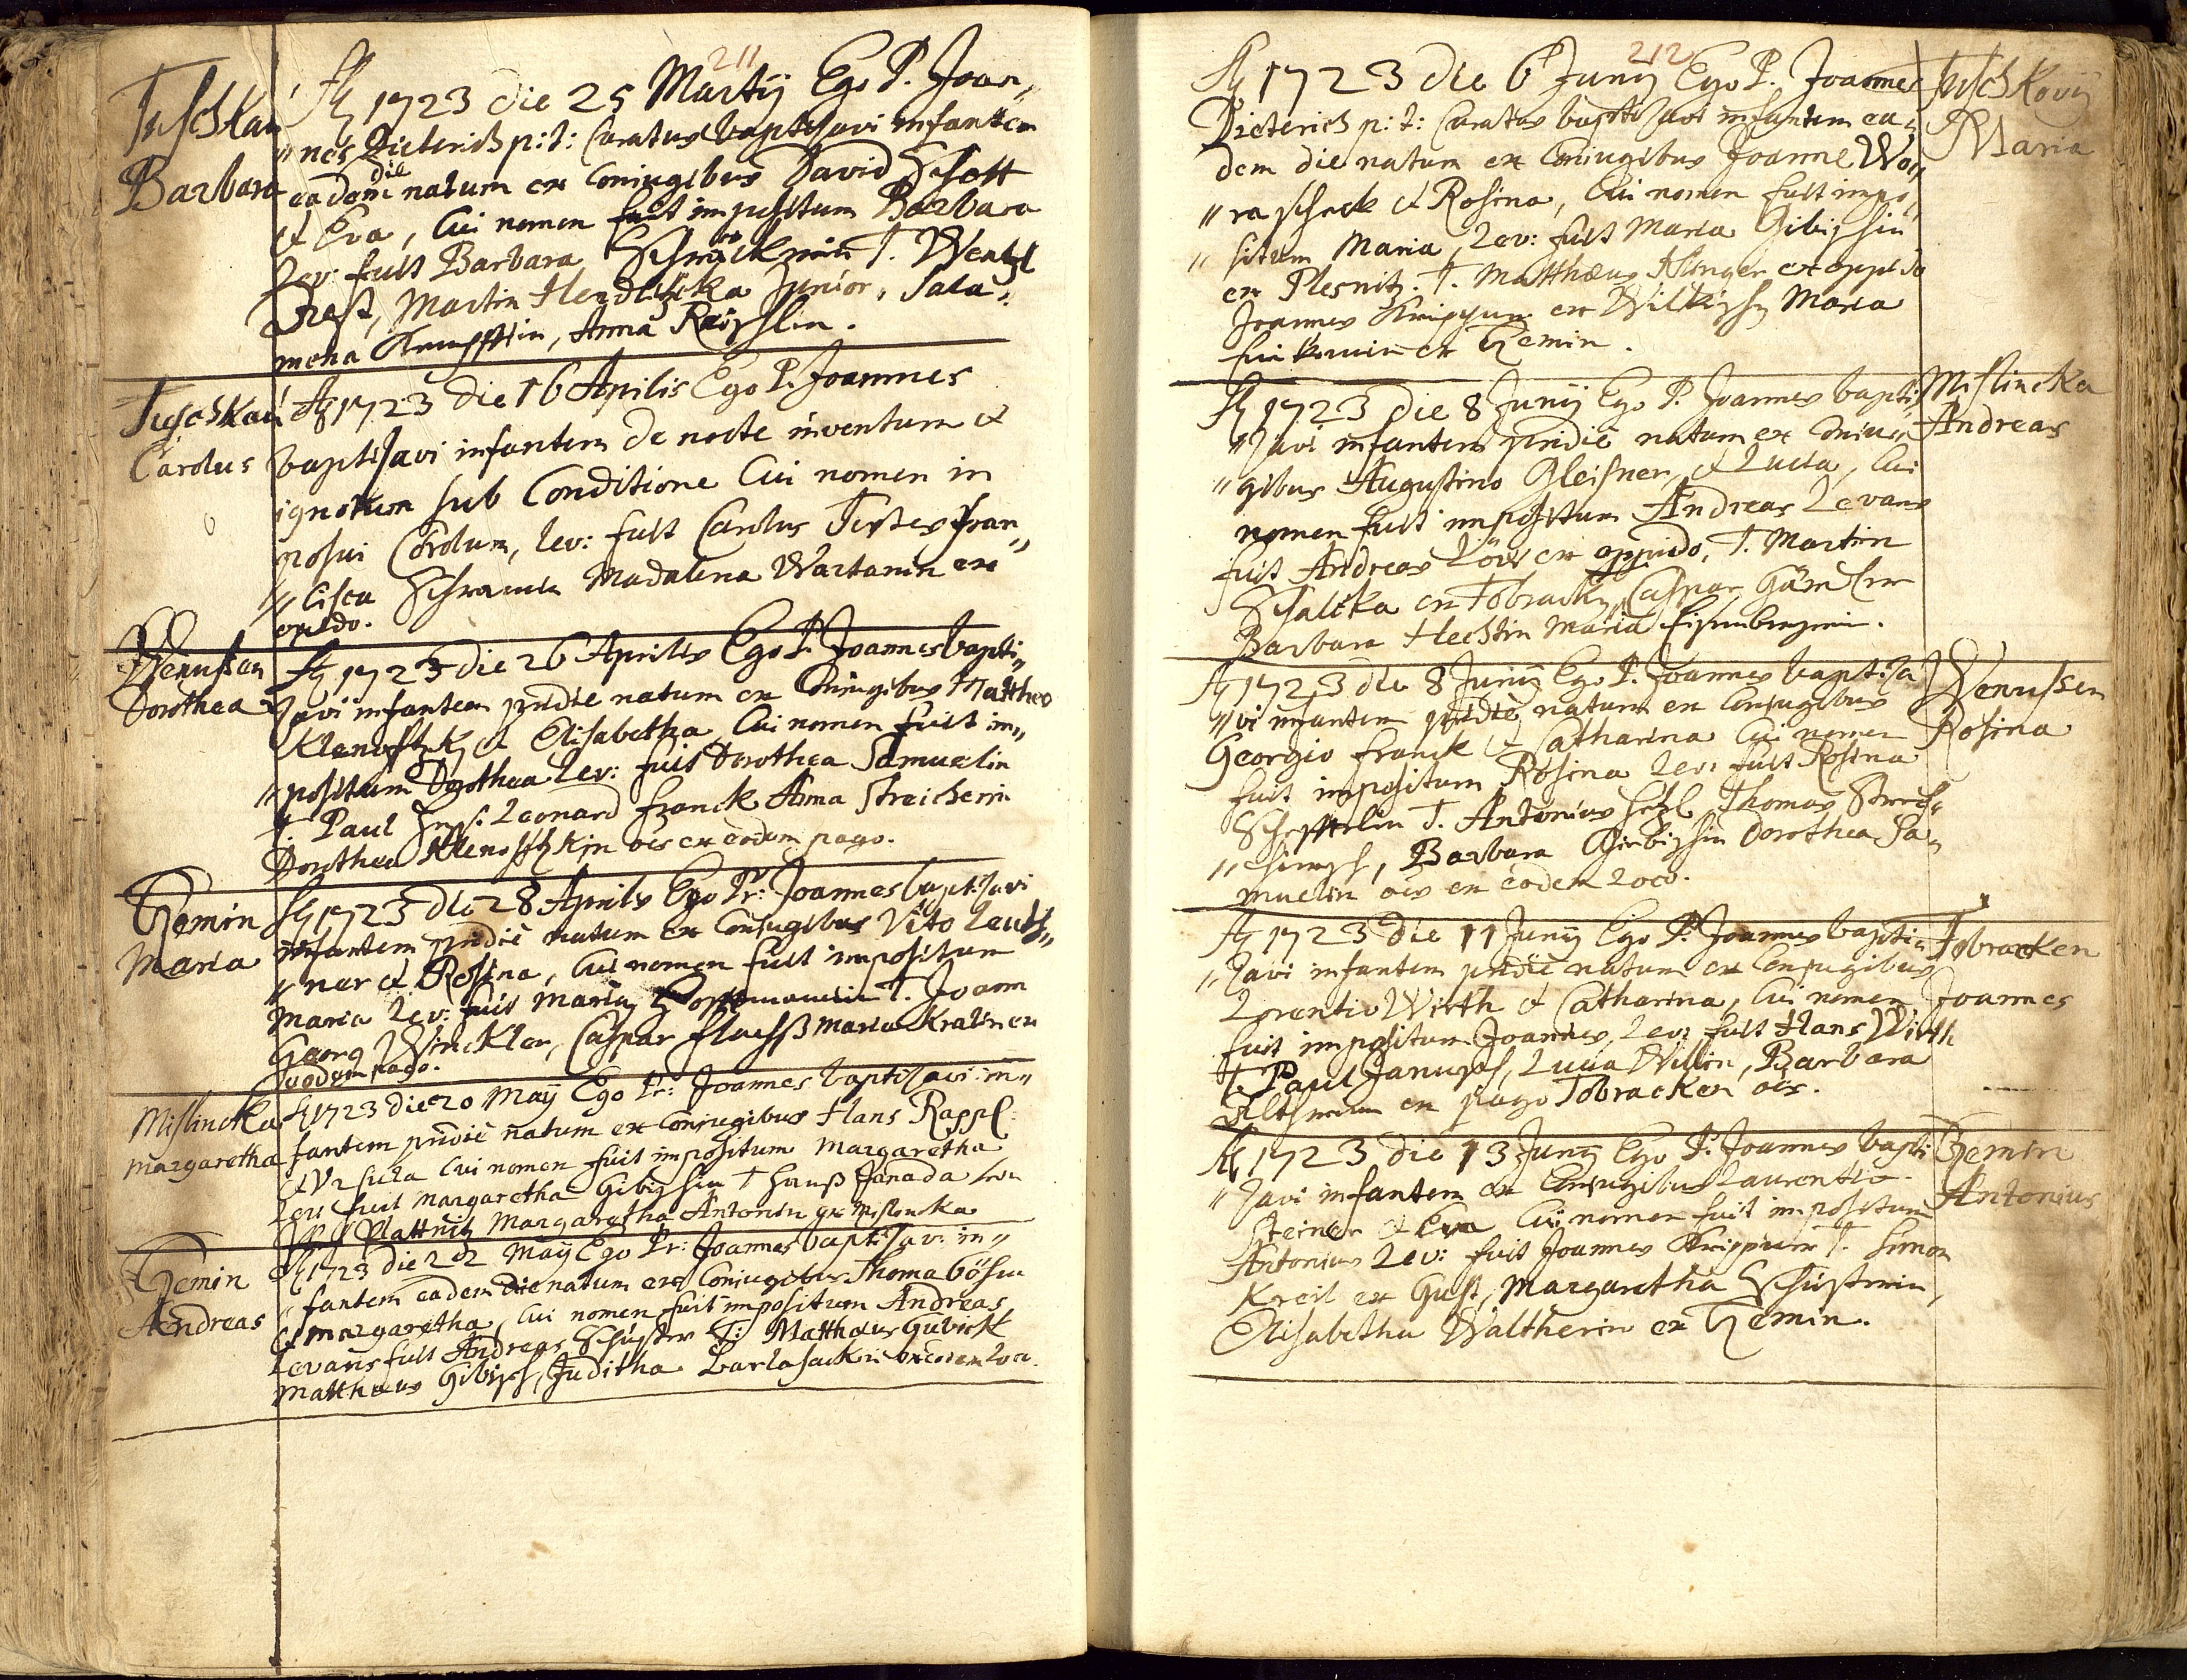 211
Tuschkau
Barbara
Ao 1723 die 25 Martij Ego P. Joan„
„nes Dieterich p: t: Curatus baptisavi infantem
eadem die natum ex Coniugibus David Schott
et Eva, Cui nomen fuit impositum Barbara
Lev: fuit Barbara T. Wentzl
Martin Junior, Sala„
mena Anna
Tuschkau
Carolus
Ao 1723 die 16 Aprilis Ego P. Joannes
baptisavi infantem de nocte inventum et
ignotum sub Conditione Cui nomen im
posui Carolum, lev: fuit Carolus Testes Fran„
„cisca Madalena Wartanin ex
opido.
Wenussen
Dorothea
Ao 1723 die 26 Aprilis Ego P. Joannes bapti„
savi infantem pridie natum ex Coniugibus Mattheo
et Elisabetha Cui nomen fuit im„
„positum Dorothea Lev: fuit Dorothea Samuelin
T. Paul Leonard Franck Anna Streicherin
Dorothea oes ex eodem pago.
Zemin
Maria
Ao 1723 die 28 Aprilis Ego Pr: Joannes baptisavi
infantem pridie natum ex Coniugibus Vito Leuth„
„ner et Rosina, Cui nomen fuit impositum
Maria Lev: fuit Maria T. Joann
Georg Winckler, Caspar Flachß Maria Kralin ex
eodem pago.
Mislincka
Margaretha
Ao 1723 die 20 Maij Ego Pr: Joannes baptisavi in„
fantem pridie natum ex Coniugibus Hans Rappl
et Ursula Cui nomen fuit impositum Margaretha
Lev: fuit Margaretha Gibischin T Hanß Janada
Plattnitz Margaretha Antonin ex Mislincka
Zemin
Andreas
Ao 1723 die 22 Maij Ego Pr: Joannes baptisavi in„
fantem eadem die natum ex Coniugibus Thoma Böhm
et Margaretha, Cui nomen fuit impositum Andreas
Levans fuit Andreas Schuster T: Matthæus Gubick
Matthæus Gibisch, Juditha ex eodem loco.
212
Ao 1723 die 6 Junij Ego P. Joannes
Dieterich p: t: Curatus baptisavi infantem ea„
dem die natum ex Coniugibus Joanne Wo„
„raschek et Rosina, Cui nomen fuit impo„
„situm Maria, Lev: fuit Maria Gibischin
ex Plesnitz. T. Matthæus Klinger ex oppido
Joannes ex Maria
ex Zemin.
Tuschkovij
Maria
Ao 1723 die 8 Junij Ego P. Joannes bapti„
„savi infantem pridie natum ex Coniu„
„gibus Augustino Gleisner, et Lucia, Cui
nomen fuit impositum Andreas Levans
fuit Andreas Löw ex oppido, T. Martin
Schaloka ex Caspar
Barbara Hechtin Maria
Mislincka
Andreas
Ao 1723 die 8 Junij Ego P. Joannes baptisa
„vi infantem pridie natum ex Coniugibus
Georgio Franck et Catharina Cui nomen
fuit impositum Rosina Lev: fuit Rosina
T. Antonius Thomas
Barbara Gibischin Dorothea Sa„
muelin oes ex eodem loco.
Wenussen
Rosina
Ao 1723 die 11 Junij Ego P. Joannes bapti„
„savi infantem pridie natum ex Coniugibus
Lorentio Wirth et Catharina, Cui nomen
fuit impositum Joannes, Lev: fuit Hans Wirth
T. Paul Janusch, Lucia Willin, Barbara
ex pago Tobracken oes.
Tobracken
Joannes
Ao 1723 die 13 Junij Ego P. Joannes bapti
„savi infantem ex Coniugibus Laurentio
Steiner et Eva Cui nomen fuit impositum
Antonius Lev: fuit Joannes T. Simon
Kreil ex Gust, Margaretha Schusterin,
Elisabetha Waltherin ex Zemin.
Zemin
Antonius